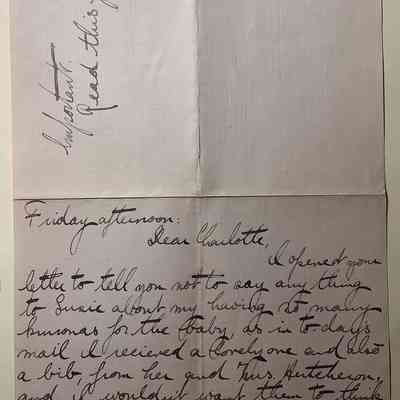 Important.
Read this
Friday afternoon:
Dear Charlotte,
I opened your
letter to tell you not to say any thing
to Susie about my having so many
kimonas for the baby, as in to-day's
mail I recieved a lovely one and also
a bib, from her and Mrs. Hutcheson,
and I wouldn't want them to think